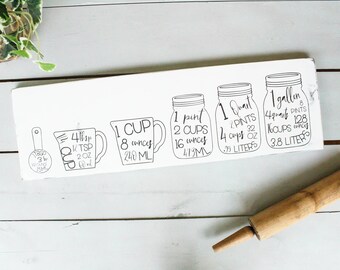 1/4 CUP
4 tbsp
12 TSP
2 OZ
60 ml
1 CUP
8 ounces
240 ML
1 pint
2 CUPS
16 ounces
1 Quart
PINTS
4 cups
32
OZ
1 gallon
4 quarts
8
PINTS
16 CUPS
128
ounces
3.8 LITERS